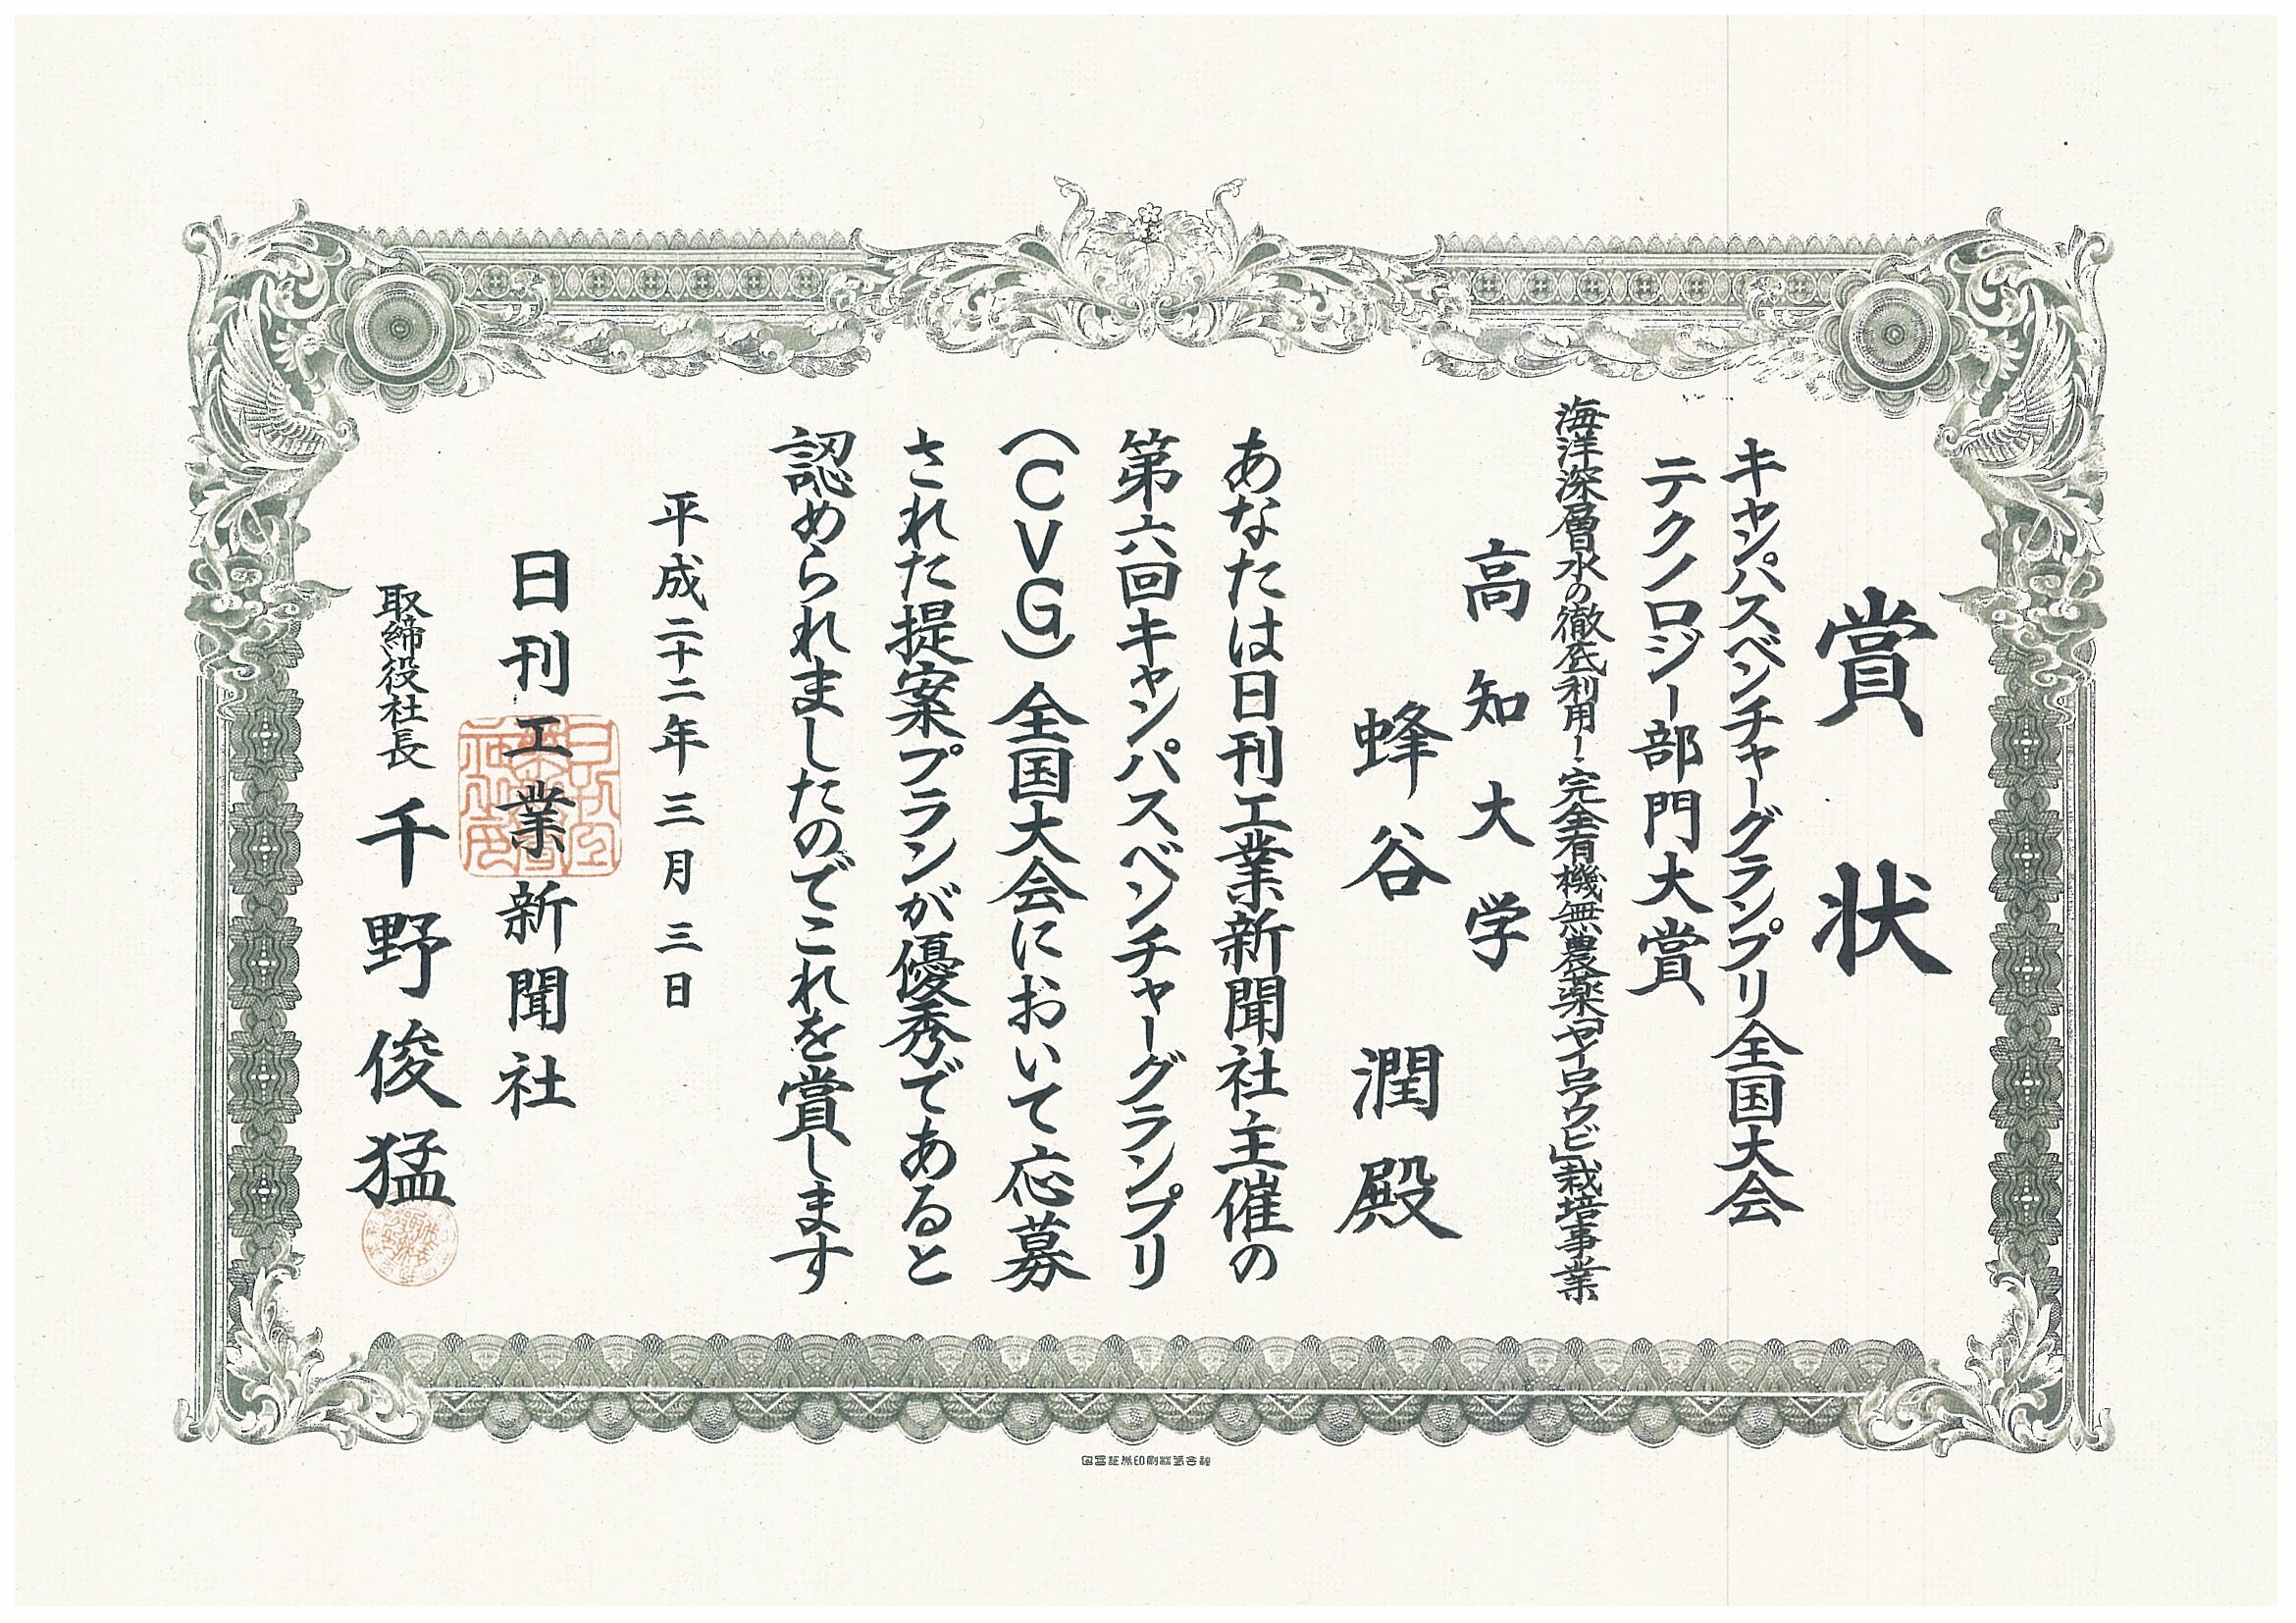 賞状
キャンパスベンチャーグランプリ全国大会
テクノロジー部門大賞
海洋深層水の徹底利用!完全有機無農薬「ヤイロアワビ」栽培事業
高知大学
蜂谷 潤 殿
あなたは日刊工業新聞社主催の
第六回キャンパスベンチャーグランプリ
(CVG)全国大会において応募
された提案プランが優秀であると
認められましたのでこれを賞します
平成二十二年三月三日
日刊工業新聞社
取締役社長 千野俊猛